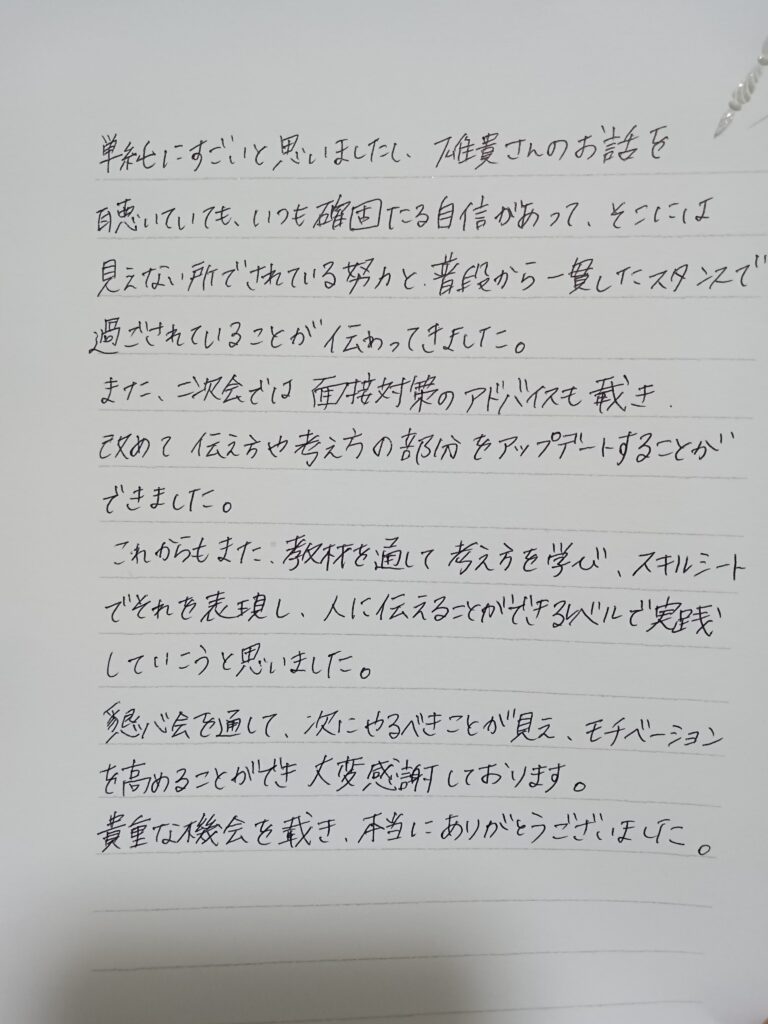 単純にすごいと思いましたし、雄貴さんのお話を
聴いていても、いつも確固たる自信があって、そこには
見えない所でされている努力と、普段から一貫したスタンスで
過ごされていることが伝わってきました。
また、二次会では面接対策のアドバイスも載き、
改めて伝え方や考え方の部分をアップデートすることが
できました。
これからもまた、教材を通して考え方を学び、スキルシート
でそれを表現し、人に伝えることができるレベルで実践
していこうと思いました。
懇心会を通して、次にやるべきことが見え、モチベーション
を高めることができ大変感謝しております。
貴重な機会を載き、本当にありがとうございました。